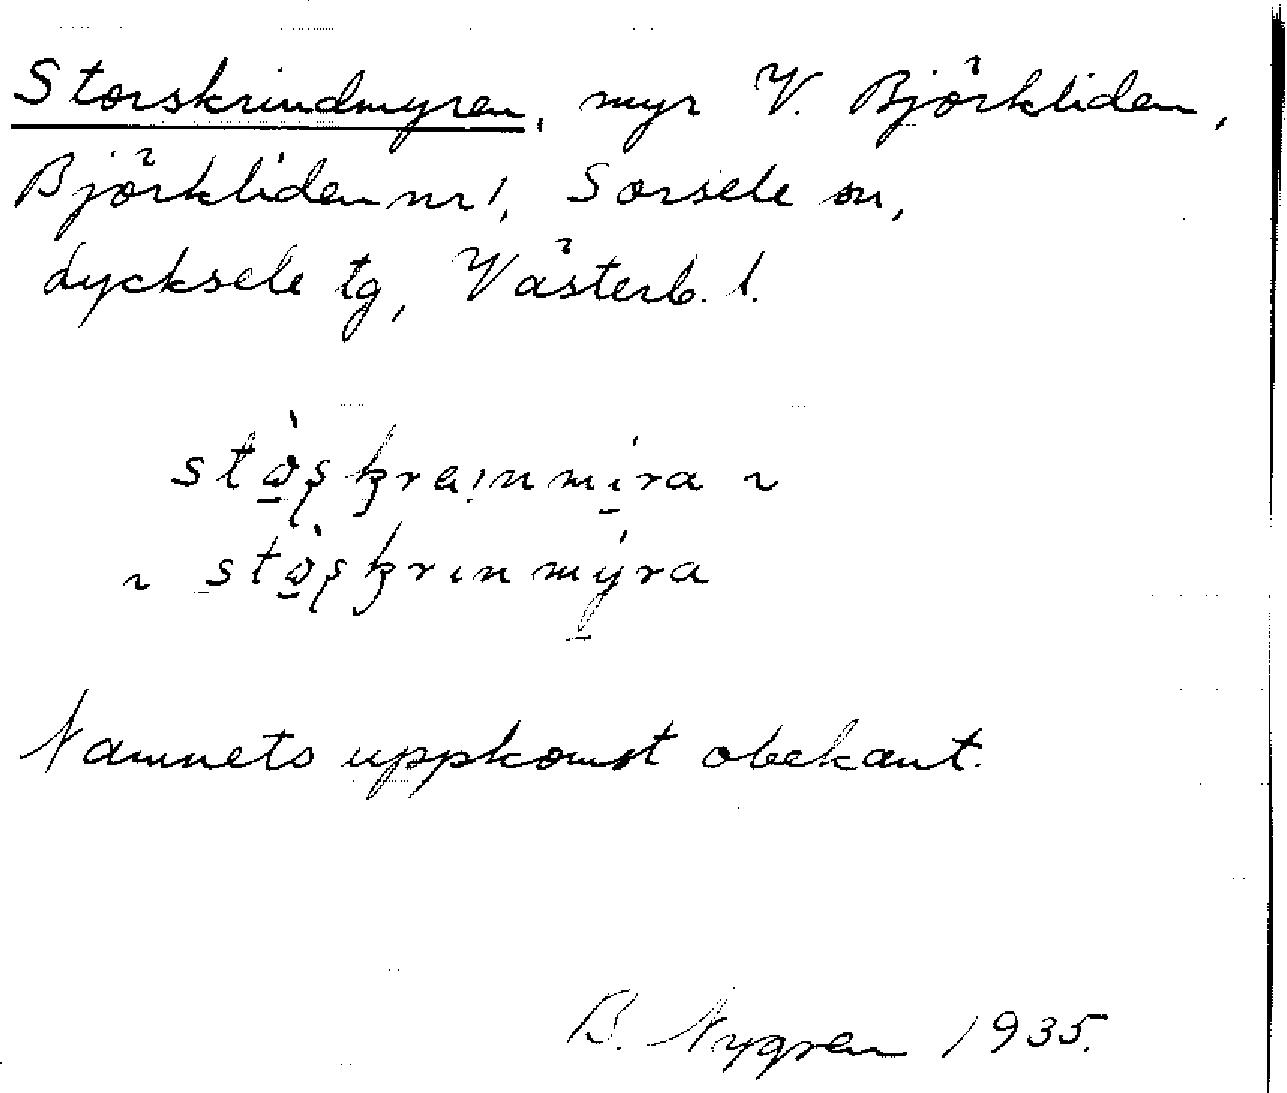 Storskrindmyren, myr V. Björkliden,
Björkliden nr 1, Sorsele sn,
Lycksele tg, Västerb. l.
Namnets uppkomst obekant.
B. Nygren 1935.